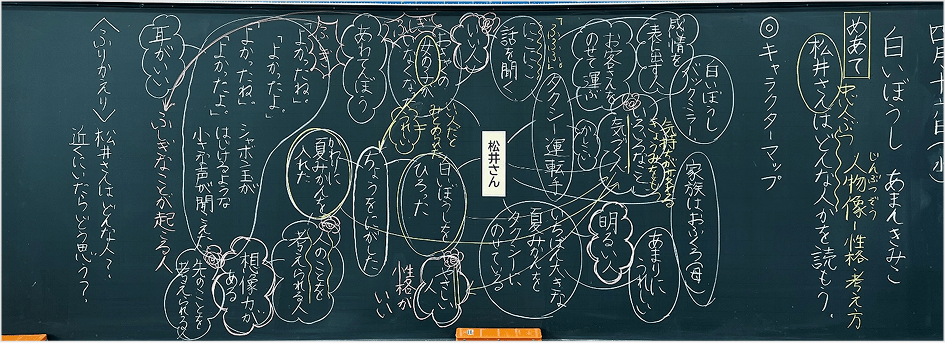 白いぼうし　あまんきみこ
めあて
人物像ー性格 考え方
じんぶつぞう
松井さんはどんな人かを読もう。
◎キャラクターマップ
白いぼうし
家族はおふくろ(母)
感情を
表に出す人
お客さんを
のせて運ぶ
いろいろなことに
気づく
あまりに
うれしい
明るい人
いちばん大きな
夏みかんを
タクシーに
のせている
タクシー運転手
にこにこ
話を聞く
松井さん
やさしい人
性格が
いい
白いぼうしを
ひろった
ちょうをにがした
女の子が
あわてんぼう
かわりに
夏みかんを
入れた
人のことを
考えられる人
想像力が
ある
先のことを
考えられる人
「よかったね。」
「よかったよ。」
「よかったね。」
「よかったよ。」
シャボン玉が
はじけるような
小さな声が聞こえた
ふしぎなことが起こる人
耳がいい
〈ふりかえり〉
松井さんはどんな人？
近くにいたらどう思う？